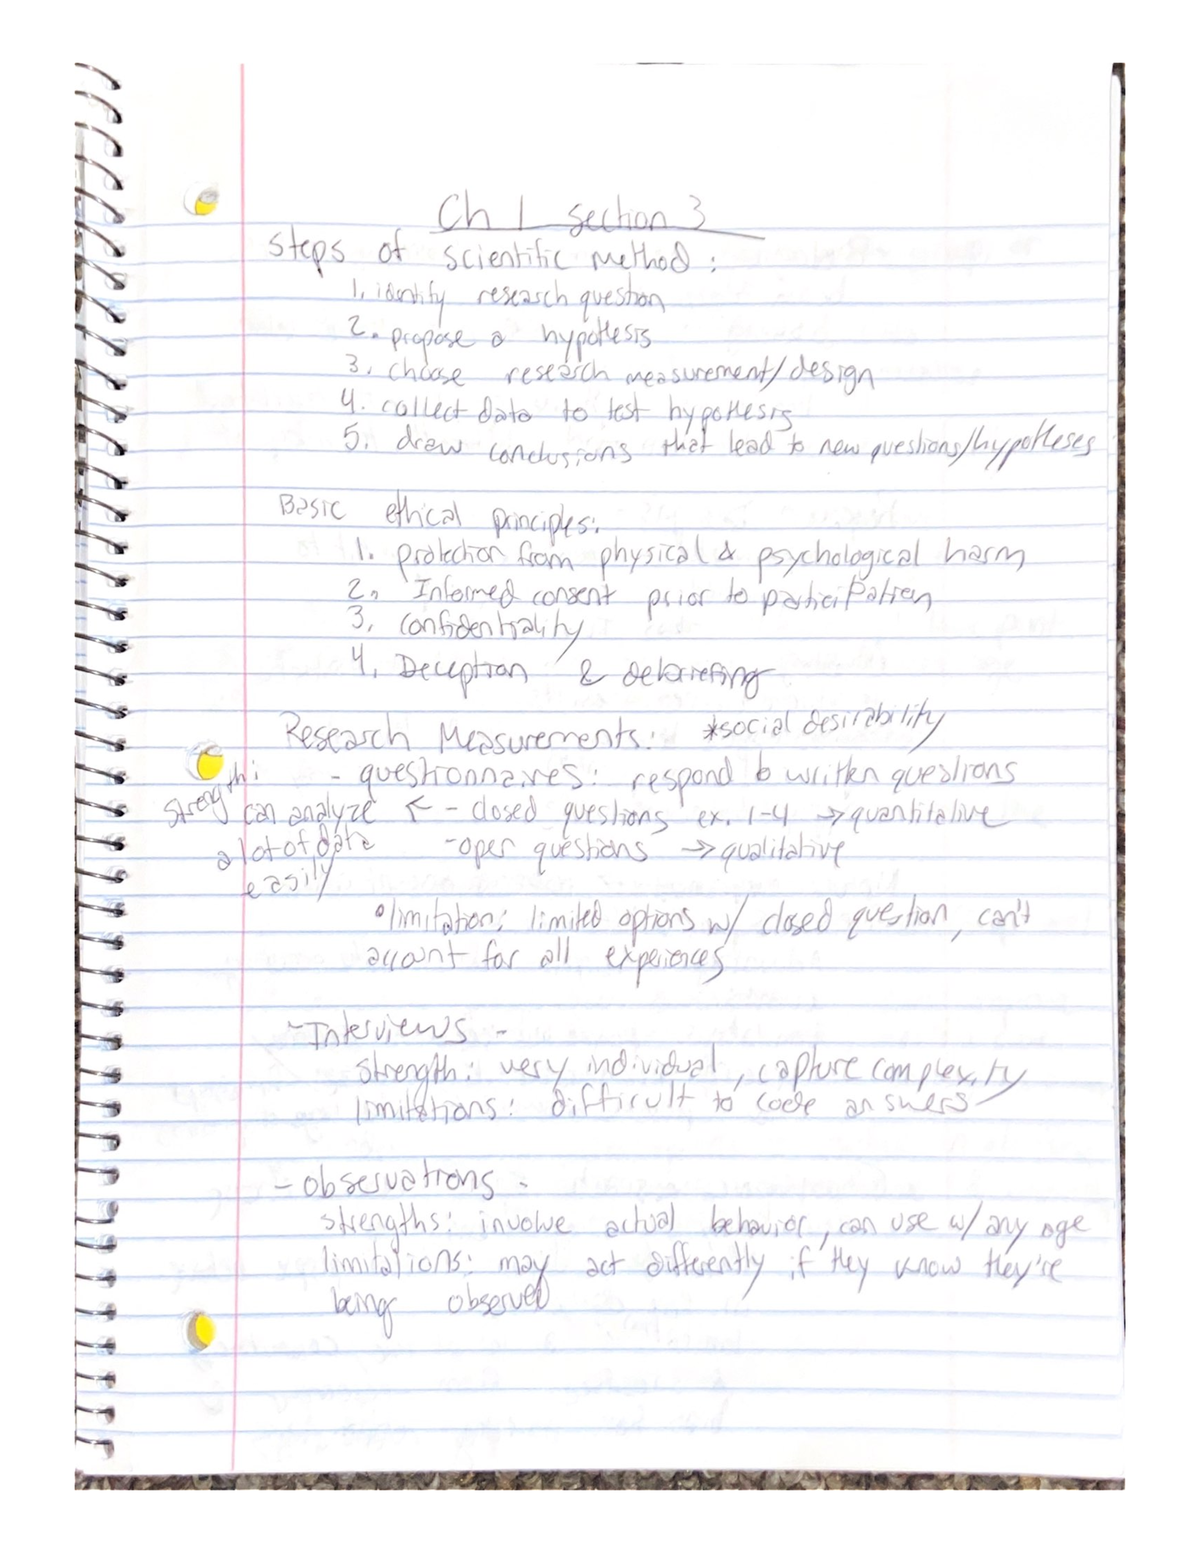 Ch 1 section 3
Steps of scientific method:
1. identify research question
2. propose a hypothesis
3. choose research measurement/design
4. collect data to test hypothesis
5. draw conclusions that lead to new questions/hypotheses
Basic ethical principles:
1. protection from physical & psychological harm
2. Informed consent prior to participation
3. Confidentiality
4. Deception & debriefing
Research Measurements: *social desirability
- questionnaires: respond to written questions
strength: can analyze ← - closed questions ex. 1-4 → quantitative
a lot of data - open questions → qualitative
easily
•limitation: limited options w/ closed question, can't
account for all experiences
- Interviews -
strength: very individual, capture complexity
limitations: difficult to code answers
- observations -
strengths: involve actual behavior, can use w/ any age
limitations: may act differently if they know they're
being observed